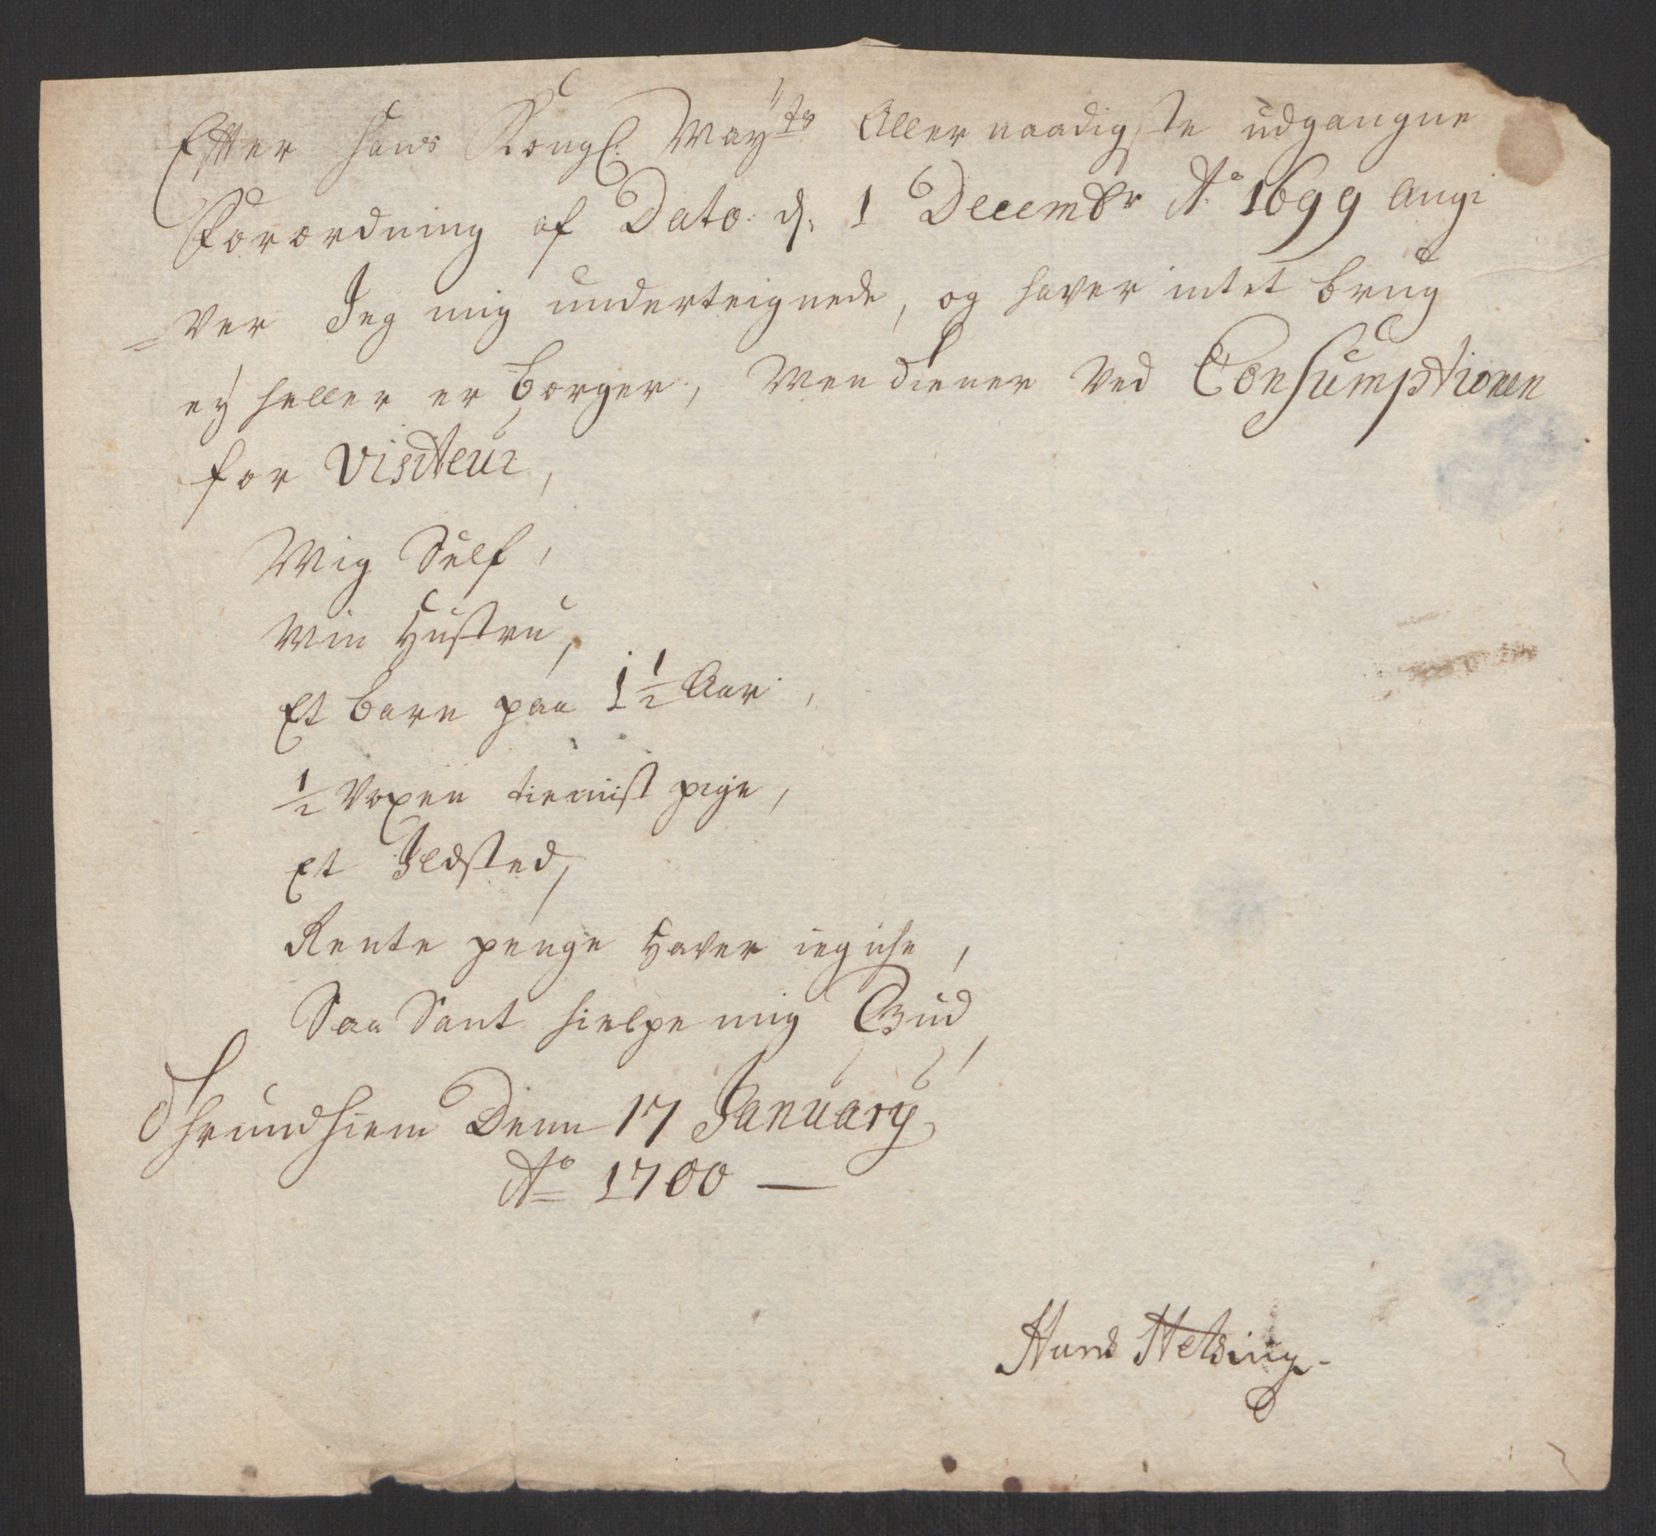 Efter Hans Kongl. Mayts Aller naadigste udgangne
Forordning af Dato d. 1 Decembr Ao 1699 Angi
=ver Jeg mig underteignede, og haver intet brug
ey heller er borger, Men diener Ved Consumptionen
for Visiteur,
Mig Self,
Min Hustru,
Et barn paa 1 1/2 Aar,
1/2 Voxen tienist pige,
Et Ildsted,
Rente penge Haver ieg iche,
Saa Sant hielpe mig Gud,
Thrundhiem Denn 17 January
Ao 1700 —
Hans